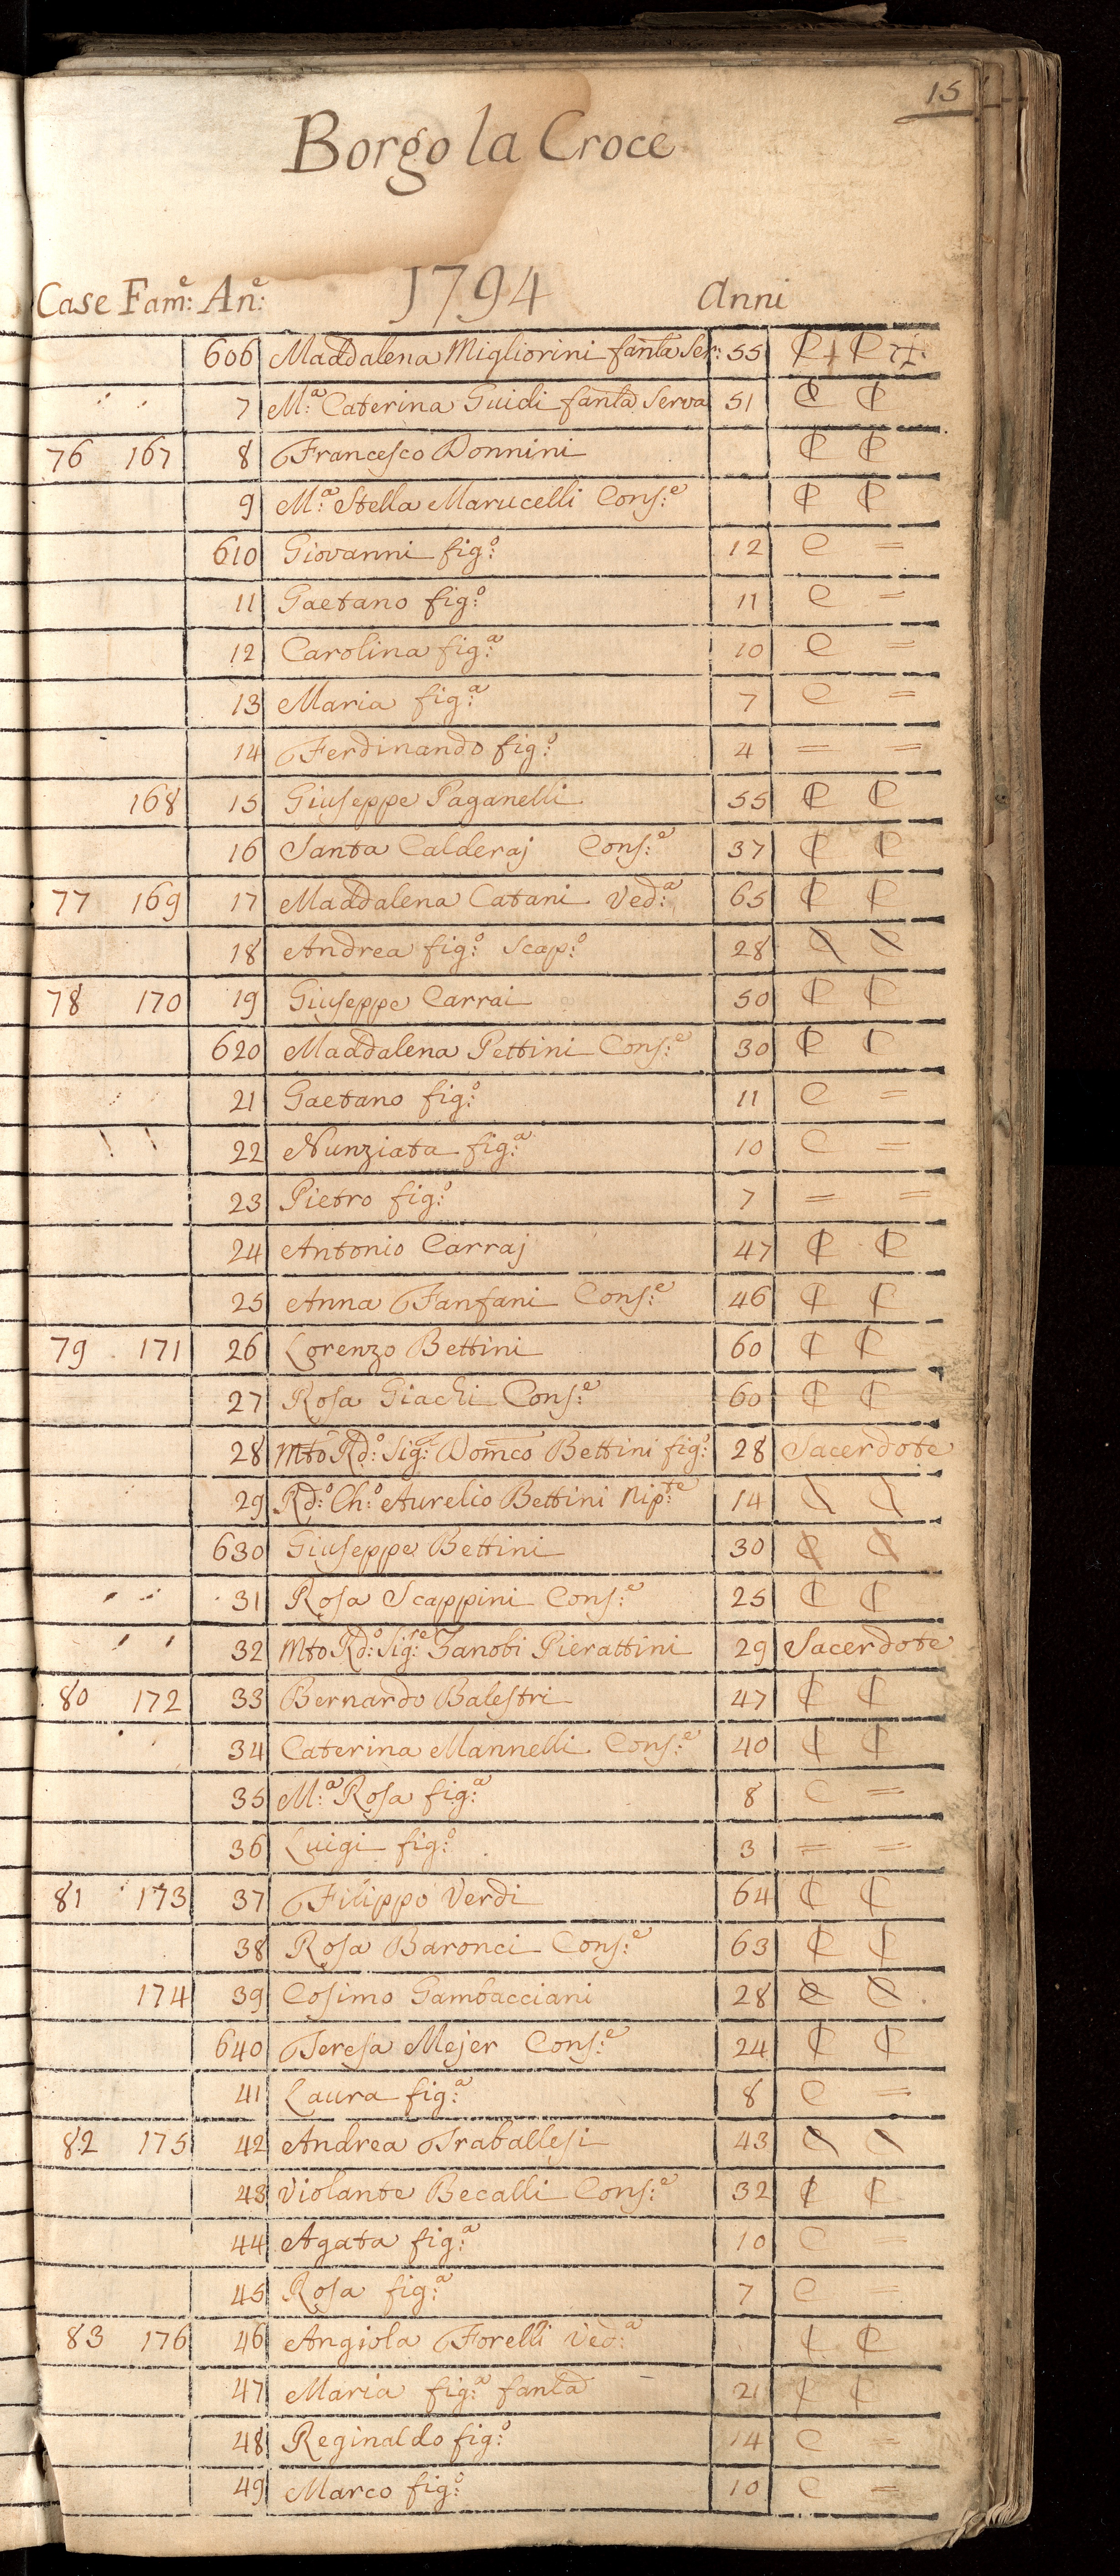 15
Borgo la Croce
Case Fam:e An:e 1794 Anni
606 Maddalena Migliorini fanla Ser: 55 C + C
7 M:a Caterina Guidi fanla Serva 51 C C
76 167 8 Francesco Donnini C C
9 M:a Stella Marucelli Cons:e C C
610 Giovanni fig:o 12 C =
11 Gaetano fig:o 11 C =
12 Carolina fig:a 10 C =
13 Maria fig:a 7 C =
14 Ferdinando fig:o 4 = =
168 15 Giuseppe Paganelli 55 C C
16 Santa Calderaj Cons:e 37 C C
77 169 17 Maddalena Catani Ved:a 65 C C
18 Andrea fig:o Scap:o 28 C C
78 170 19 Giuseppe Carrai 50 C C
620 Maddalena Pettini Cons:e 30 C C
21 Gaetano fig:o 11 C =
22 Nunziata fig:a 10 C =
23 Pietro fig:o 7 = =
24 Antonio Carraj 47 C C
25 Anna Fanfani Cons:e 46 C C
79 171 26 Lorenzo Bettini 60 C C
27 Rosa Giachi Cons:e 60 C C
28 Mto Rd:o Sig:e Domco Bettini fig:o 28 Sacerdote
29 Rd:o Ch:o Aurelio Bettini Nip:te 14 C C
630 Giuseppe Bettini 30 C C
31 Rosa Scappini Cons:e 25 C C
32 Mto Rd:o Sig:e Zanobi Pierattini 29 Sacerdote
80 172 33 Bernardo Balestri 47 C C
34 Caterina Mannelli Cons:e 40 C C
35 M:a Rosa fig:a 8 C =
36 Luigi fig:o 3 = =
81 173 37 Filippo Verdi 64 C C
38 Rosa Baronci Cons:e 63 C C
174 39 Cosimo Gambacciani 28 C C
640 Teresa Mejer Cons:e 24 C C
41 Laura fig:a 8 C =
82 175 42 Andrea Traballesi 43 C C
43 Violante Becalli Cons:e 32 C C
44 Agata fig:a 10 C =
45 Rosa fig:a 7 C =
83 176 46 Angiola Forelli Ved:a C C
47 Maria fig:a fanla 21 C C
48 Reginaldo fig:o 14 C =
49 Marco fig:o 10 C =